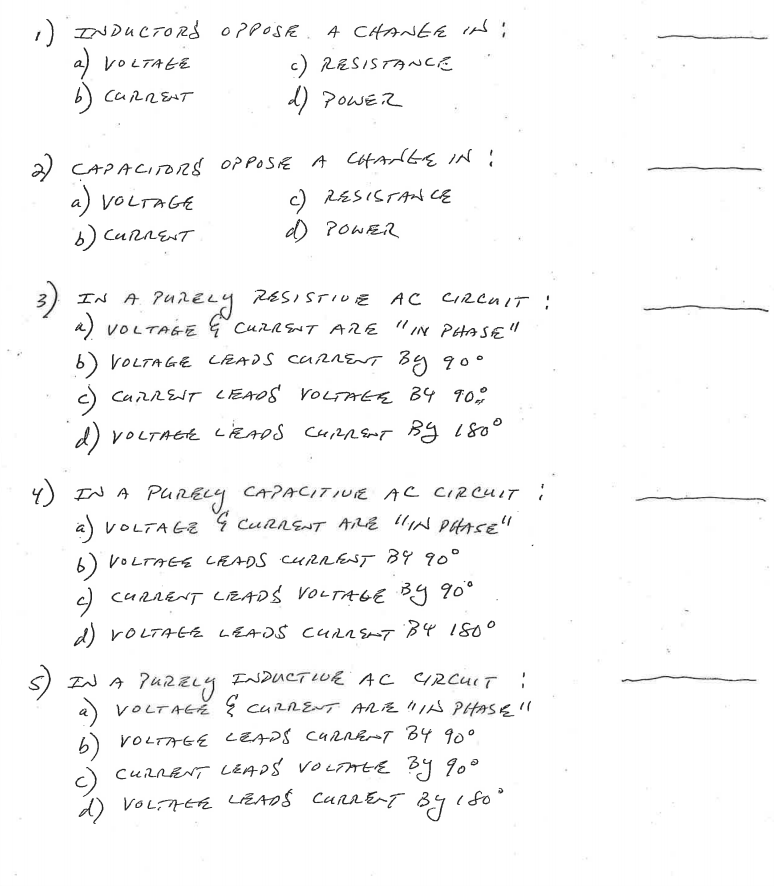 1) INDUCTORS OPPOSE A CHANGE IN :
a) VOLTAGE c) RESISTANCE
b) CURRENT d) POWER
2) CAPACITORS OPPOSE A CHANGE IN :
a) VOLTAGE c) RESISTANCE
b) CURRENT d) POWER
3) IN A PURELY RESISTIVE AC CIRCUIT :
a) VOLTAGE & CURRENT ARE "IN PHASE"
b) VOLTAGE LEADS CURRENT By 90°
c) CURRENT LEADS VOLTAGE BY 90°
d) VOLTAGE LEADS CURRENT By 180°
4) IN A PURELY CAPACITIVE AC CIRCUIT :
a) VOLTAGE & CURRENT ARE "IN PHASE"
b) VOLTAGE LEADS CURRENT BY 90°
c) CURRENT LEADS VOLTAGE By 90°
d) VOLTAGE LEADS CURRENT BY 180°
5) IN A PURELY INDUCTIVE AC CIRCUIT :
a) VOLTAGE & CURRENT ARE "IN PHASE"
b) VOLTAGE LEADS CURRENT BY 90°
c) CURRENT LEADS VOLTAGE By 90°
d) VOLTAGE LEADS CURRENT By 180°